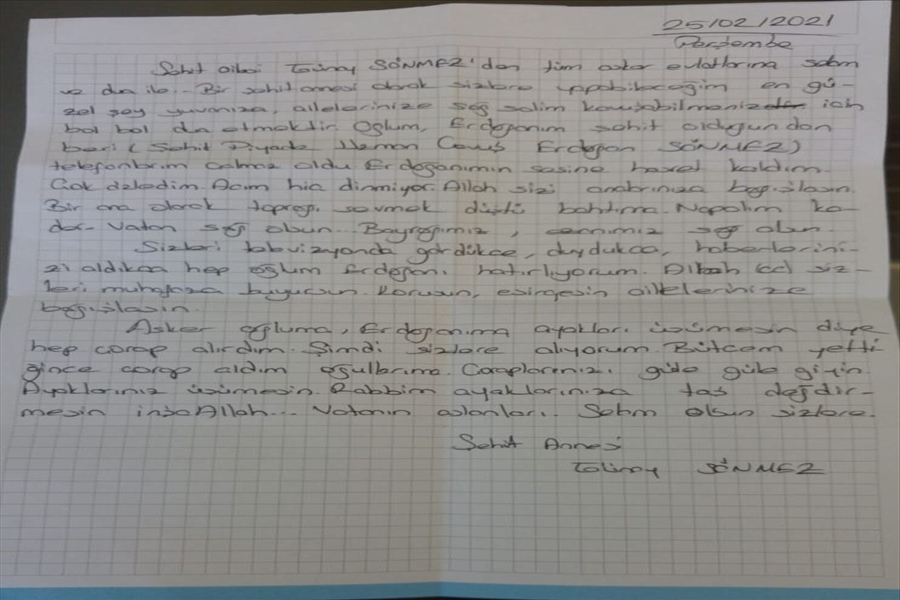 25/02/2021
Perşembe
Şehit ailesi SÖNMEZ'den tüm asker evlatlarına selam
ve dua ile. Bir şehit annesi olarak sizlere yapabileceğim en gü-
zel şey yuvanıza, ailelerinize sağ salim kavuşabilmeniz için
bol bol dua etmektir. Oğlum, Erdoğanım şehit olduğundan
beri (Şehit Piyade Uzman Çavuş Erdoğan SÖNMEZ)
telefonlarım çalmaz oldu Erdoğanımın sesine hasret kaldım.
Çok özledim Acım hiç dinmiyor. Allah sizi analarınıza bağışlasın.
Bir ana olarak toprağı sevmek düştü bahtıma. Napalım ka-
der. Vatan sağ olsun. Bayrağımız, sağ olsun.
Sizleri televizyonda gördükçe, duydukça, haberlerini-
zi aldıkça hep oğlum Erdoğanı hatırlıyorum. Allah siz-
leri muhafaza buyursun. Korusun, esirgesin ailelerinize
bağışlasın.
Asker oğluma, Erdoğanıma ayakları üşümesin diye
hep çorap alırdım. Şimdi sizlere alıyorum. Bütçem yetti
ğince çorap aldım oğullarıma. Çoraplarınızı güle güle giyin
Ayaklarınız üşümesin. Rabbim ayaklarınıza taş değdir-
mesin inşaAllah... Vatanın aslanları. Selam olsun sizlere.
Şehit Annesi
SÖNMEZ